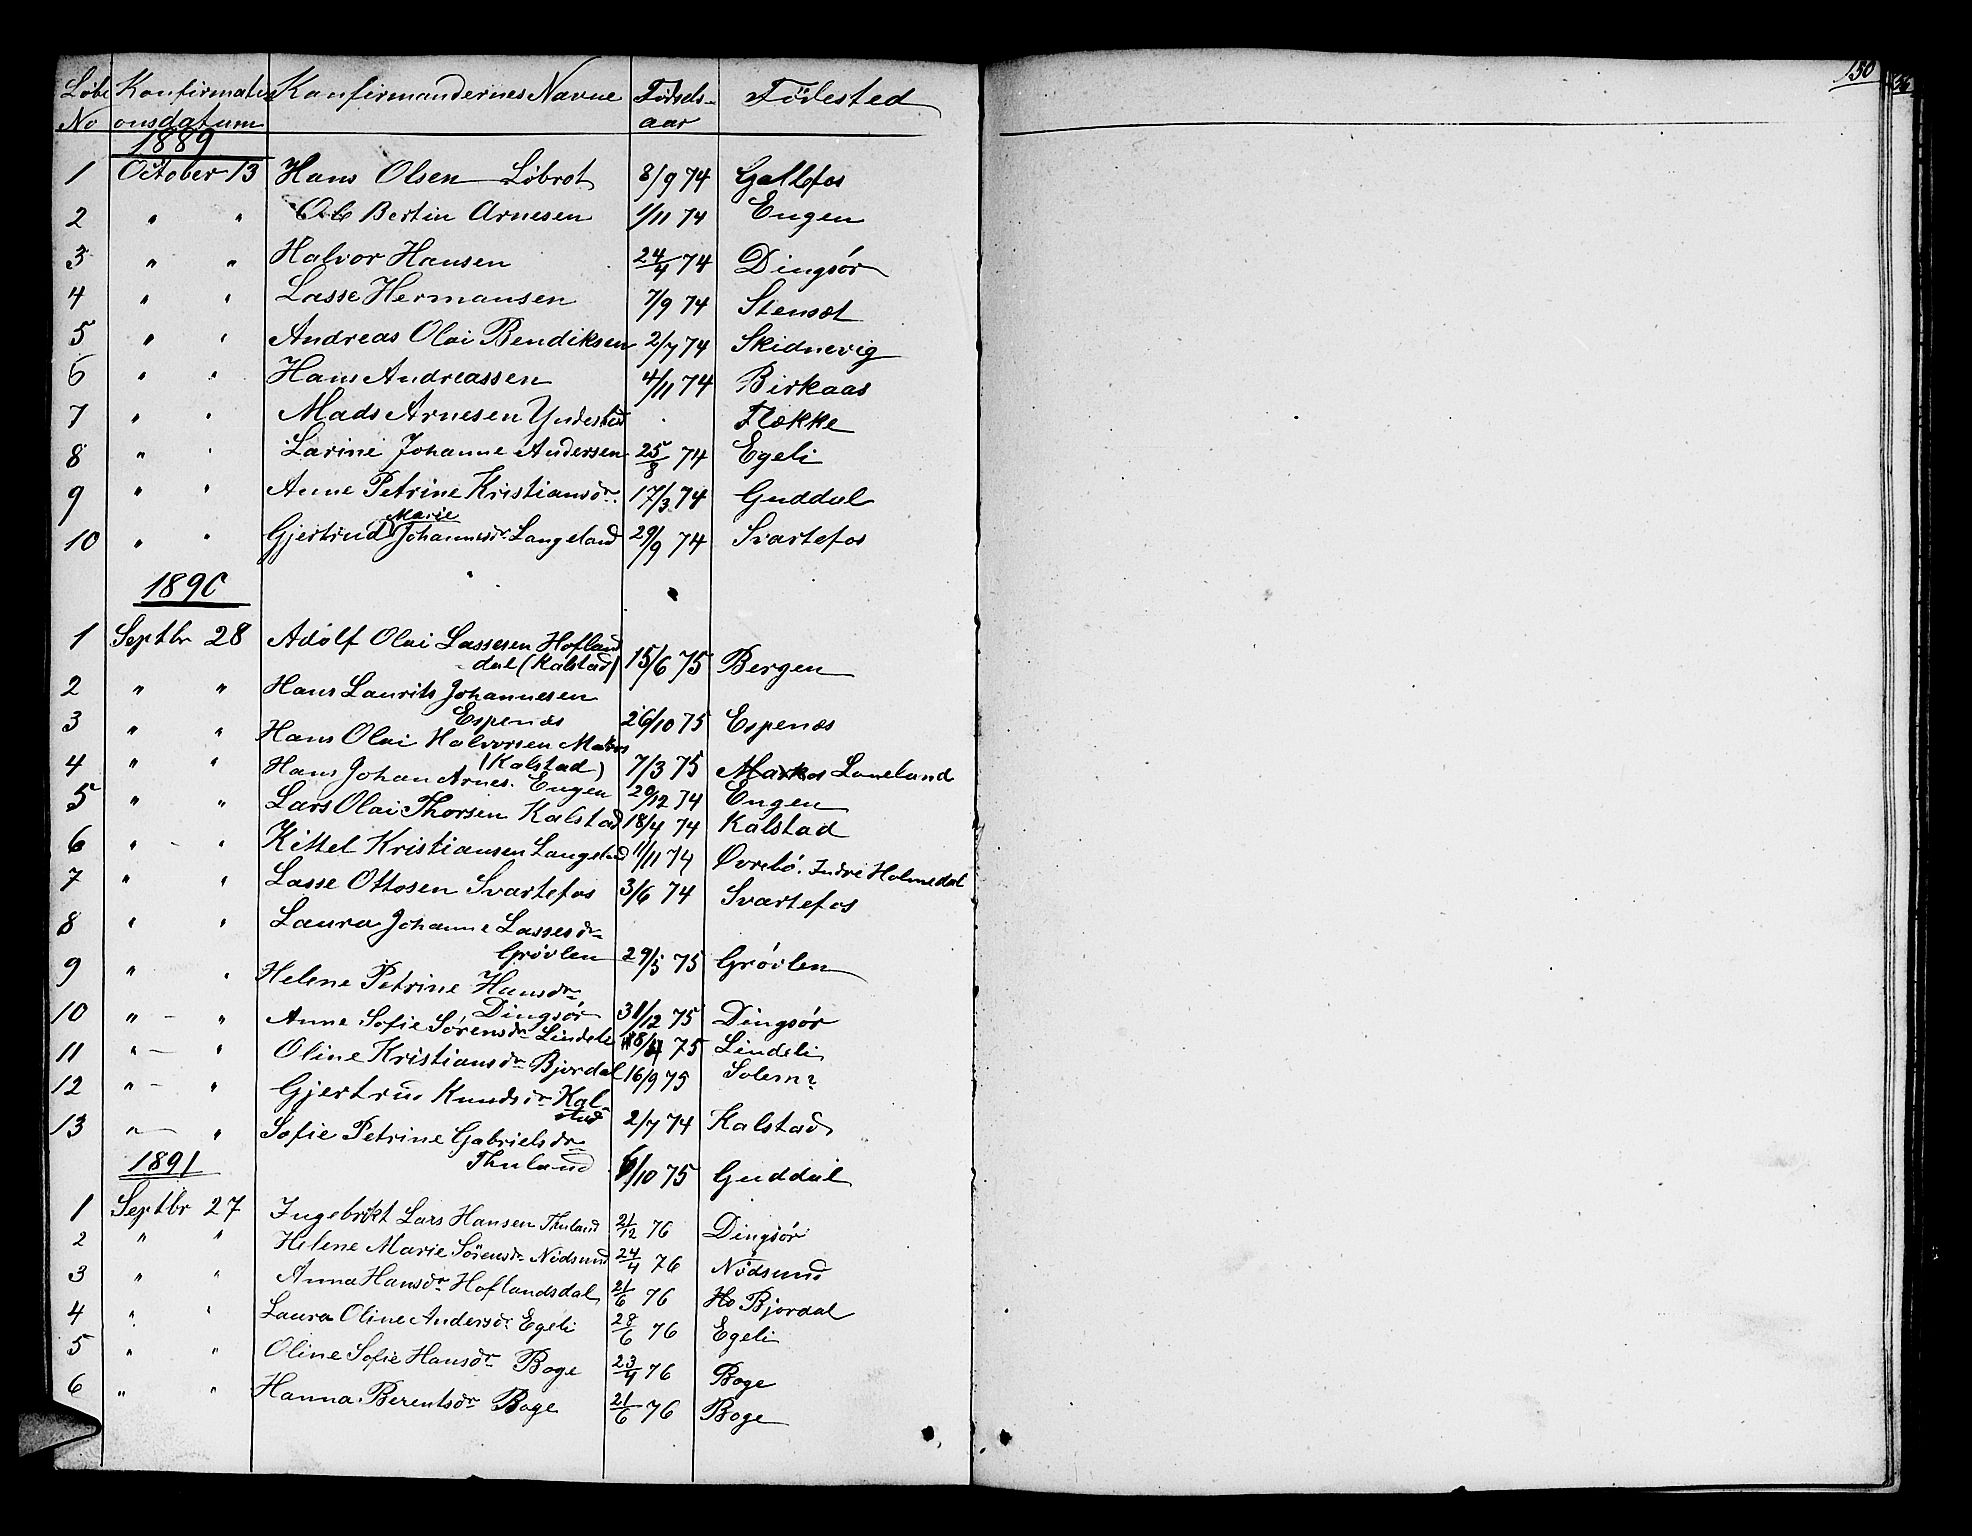 Løbe Konfirmati Konfirmandernes Navne Fødsels- Födested
No onsdatum aar
1889
1 October 13 Hans Olsen Løbrot 8/9 74 Gallefos
2 " " Ole Bertin Arnesen 1/11 74 Engen
3 " " Halvor Hansen 24/4 74 Dingsör
4 " " Lasse Hermansen 7/9 74 Stensæt
5 " " Andreas Olai Bendiksen 2/7 74 Skidnevig
6 " " Hans Andreassen 4/11 74 Birkaas
7 " " Mads Arnesen Yndestad Flække
8 " " Larine Johanne Andersen 25/8 74 Egeli
9 " " Anne Petrine Kristiansdr. 17/3 74 Guddal
Marie
10 " " Gjertrud Johannesdr. Langeland 29/9 74 Svartefos
1890
1 Septbr 28 Adolf Olai Lassesen Hofland
dal (Kalstad) 15/6 75 Bergen
2 " " Hans Laurits Johannesen
Espenæs 26/10 75 Espenæs
3 " " Hans Olai Halvorsen Markos
(Kalstad) 7/3 75 Markos Laneland
4 " " Hans Johan Arnes. Engen 29/12 74 Engen
5 " " Lars Olai Thorsen Kalstad 18/4 74 Kalstad
6 " - " Kittel Kristiansen Langelad 11/11 74 Øvrebö. Indre Holmedal
7 " " Lasse Ottosen Svartefos 3/6 74 Svartefos
8 " " Laura Johanne Lassesdr
Grövlen 29/5 75 Grövlen
9 " " Helene Petrine Hansdr.
Dingsör 31/12 75 Dingsör
10 " - " Anne Sofie Sörensdr Lindeli 18/4 75 Lindeli
11 " - " Oline Kristiansdr Bjordal 16/9 75 Solem?
12 " - " Gjertrud Knudsdr Kal-
stad 2/7 74 Kalstad
13 " - " Sofie Petrine Gabrielsdr
Thuland 6/10 75 Guddal
1891
1 Septbr 27 Ingebrikt Lars Hansen Thuland 21/12 76 Dingsör
2 " " Helene Marie Sörensdr Nödsund 24/4 76 Nödsund
3 " " Anna Hansdr Hoflandsdal 21/6 76 Ho Bjordal
4 " " Laura Oline Andersdr Egeli 28/6 76 Egeli
5 " " Oline Sofie Hansdr Boge 23/4 76 Boge
6 " " Hanna Berentsdr Boge 21/6 76 Boge
150